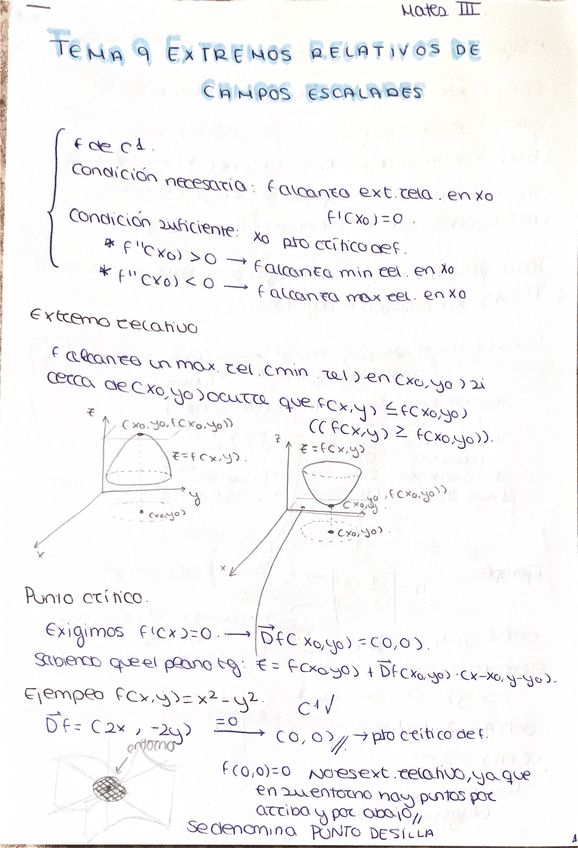 Mates III.
TEMA 9 EXTREMOS RELATIVOS DE
CAMPOS ESCALARES
f de C1.
condición necesaria: f alcanza ext. rela. en x0
f'(x0)=0.
condición suficiente: x0 pto crítico de f.
* f''(x0) > 0 → f alcanza min rel. en x0
* f''(x0) < 0 → f alcanza max rel. en x0
Extremo relativo
f alcanza un max. rel. (min. rel) en (x0, y0) si
cerca de (x0, y0) ocurre que f(x,y) ≤ f(x0,y0)
((f(x,y) ≥ f(x0,y0)).
z
(x0, y0, f(x0, y0))
z=f(x,y).
y
(x0, y0)
x
z
z=f(x,y)
(x0, y0, f(x0, y0)).
(x0, y0).
x
Punto crítico.
Exigimos f'(x)=0. → Df(x0, y0) = (0,0).
Sabiendo que el plano tg: z = f(x0,y0) + Df(x0,y0) · (x-x0, y-y0).
Ejemplo f(x,y)=x²-y². C1√
Df = (2x, -2y) =0 → (0,0) // → pto crítico de f.
entorno
f(0,0)=0 No es ext. relativo, ya que
en su entorno hay puntos por
arriba y por abajo //
Se denomina PUNTO DE SILLA
1